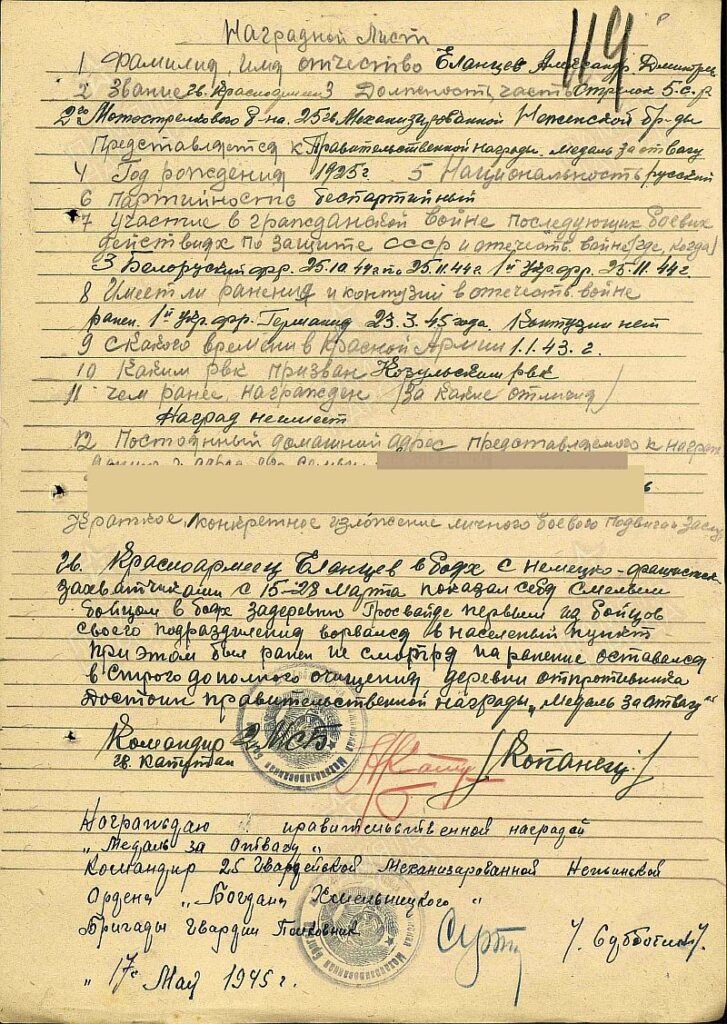 Наградной Лист
119
1 Фамилия Имя отчество Еланцев Александр Дмитрев
2 Звание гв. Красноармеец 3 Должность, часть Стрелок 5.с.р
2го Мотострелкового б-на. 25 гв Механизированной Неженской бр-ды
Представляется к Правительственной награды. медаль за отвагу
4 Год рождения 1925г 5 Национальность русский
6 Партийность беспартийный
7 Участие в гражданской войне последующих боевых
действиях по защите СССР и отечеств. войне (где, когда)
3 Белоруский фр. 25.10.44г по 25.11.44г. 1й Укр. фр. 25.11.44г.
8 Имеет ли ранения и контузий в отечеств войне
ранен. 1й Укр. фр. Германия 23.3.45 года. Контузии нет
9 С какого времени в Красной Армии 1.1.43.г.
10 Каким рвк призван Козульским рвк
11 Чем ранее награжден (за какие отличия)
Наград не имеет
12 Постоянный домашний адрес представляемого к наград
Краткое, конкретное изложение личного боевого подвига и заслу
Гв. Красноармеец Еланцев в боях с немецко-фашистск
захватчиками с 15-23 марта показал себя смелым
бойцом в боях за деревню Просвайде первым из бойцов
своего подразделения ворвался в населеный пункт
при этом был ранен не смотря на ранение оставался
в строю до полного очищения деревни от противника
Достоин правительственной награды „Медаль за Отвагу"
Командир 2 МСБ
гв. Капитан /Копанец/
Награждаю правительственной наградой
„Медаль за Отвагу"
Командир 25 Гвардейской Механизированной Нежинской
Ордена „Богдана Хмельницкого"
Бригады Гвардии Полковник /. Субботин /.
„17" Мая 1945 г.